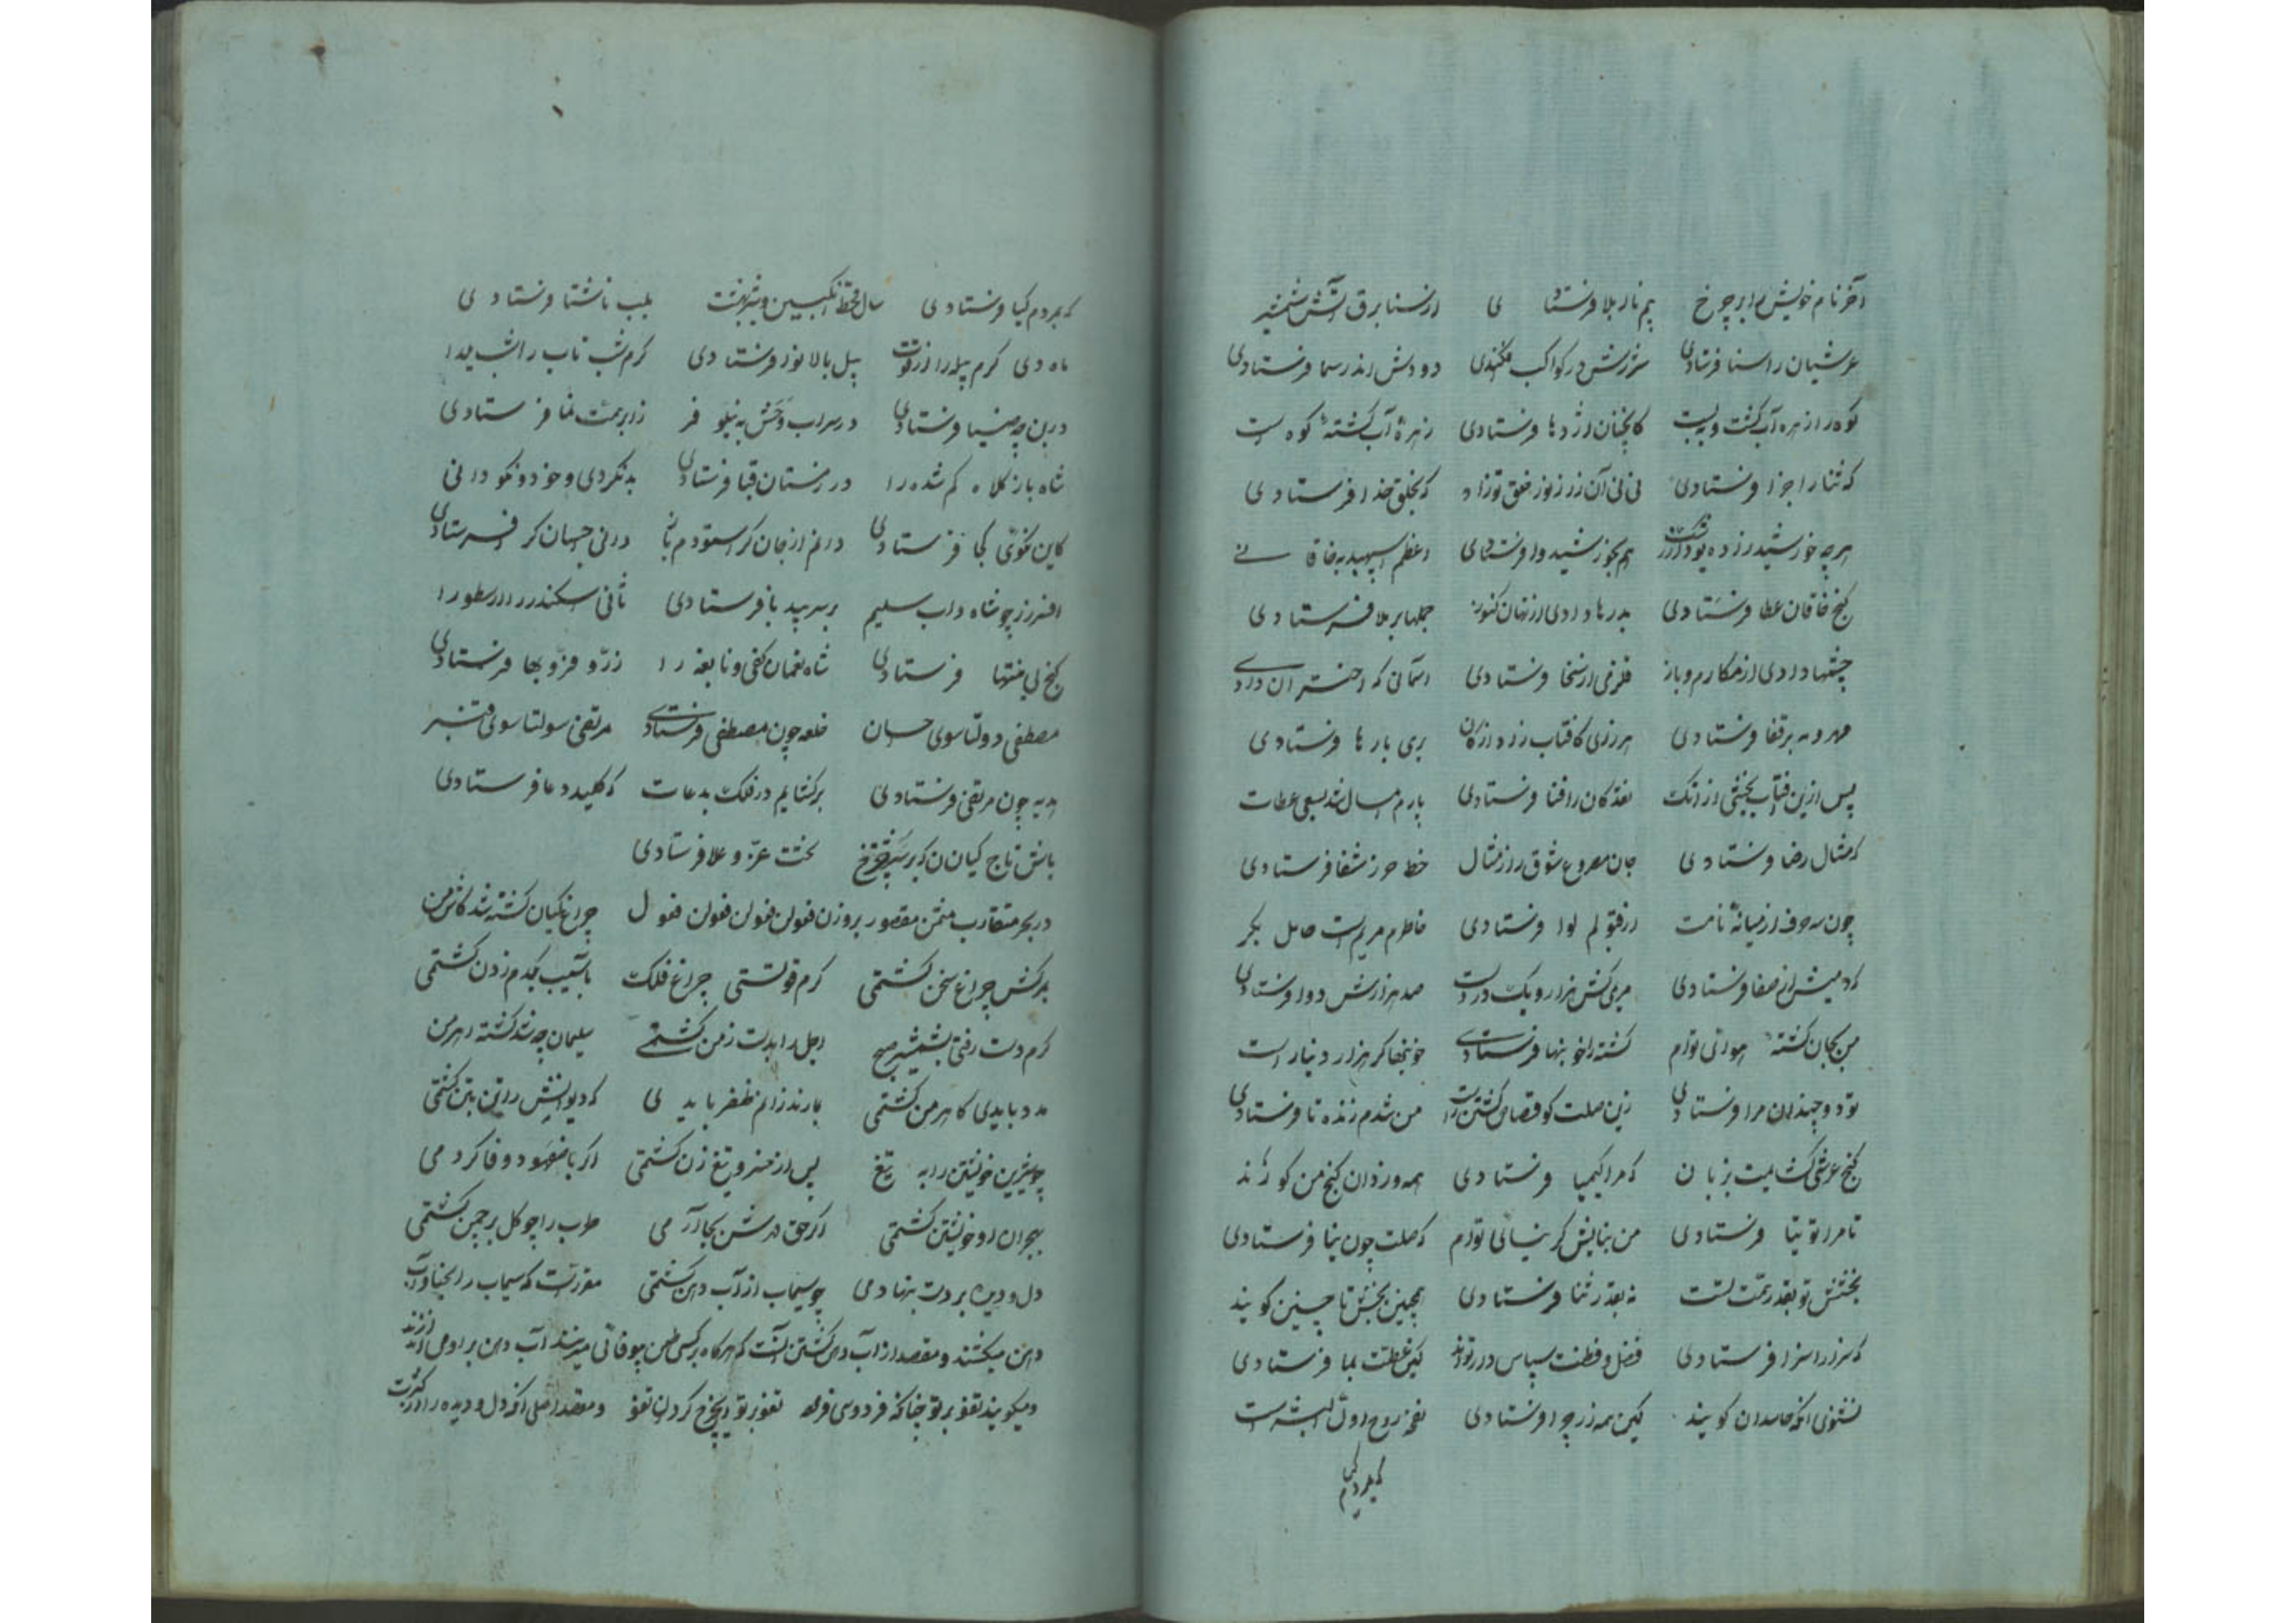 آخر نام خویش را بر چرخ بیم نار بلا فرستادی از سنا برق آتش شمشیر
عرشیان را سنا فرستادی شررش در کواکب افکندی دودش اندر سما فرستادی
کوه را زهره آب گشت و ببست کانچنان اژدها فرستادی زهرهٔ آب گشتهٔ کوه است
که ثنا را جزا فرستادی نی نی آن زر ز نور خلق تو زاد که بخلق خدا فرستادی
هر چه خورشید زاده بود هم بخورشید وا فرستادی اعظم اسپهبد بخاقانی
گنج خاقان عطا فرستادی بدرها دادی از نهان کنون جملها بر ملا فرستادی
چشمها دادی از مکارم و باز قلزمی از سخا فرستادی آسمانی که اختران داری
مهر و مه بر قفا فرستادی هر زری کافتاب زاد از کان بری بارها فرستادی
پس ازین آفتاب بخشی از آنک نقد کان را فنا فرستادی پارم امسال شد بسعی عطات
که مثال رضا فرستادی جان مصروع شوق را ز مثال خط حرز شفا فرستادی
چون سه حرف از میانهٔ نامت از قبولم لوا فرستادی خاطرم مریم است حامل بکر
که دمیش از صفا فرستادی مریمی کش هزار و یک درد است صد هزارش دوا فرستادی
من بجان کشتهٔ هوای توام کشته را خونبها فرستادی خونبها گر هزار دینار است
تو دو چندان مرا فرستادی زین صلت کو قصاص کشتن راست من شدم زنده تا فرستادی
گنج عرشی گشایمت بزبان که مرا کیمیا فرستادی همه دزدان گنج من کورند
تا مرا توتیا فرستادی من نیایش گر نیای توام که صلت چون نیا فرستادی
بخشش تو بقدر همت تست نه بقدر ثنا فرستادی همچنین بخش تا چنین گویند
که سزا را سزا فرستادی فضل و فطنت سپاس دار تواند کین عطیت بما فرستادی
نشنوی آنکه حاسدان گویند کین همه زر چرا فرستادی نفخهٔ روح اول البشر است
که بمردم
که بمردم گیا فرستادی سال قحط انگبین و شیر بهشت بلب ناشتا فرستادی
ماه دی کرم پیله را از قوت پیل بالا نوز فرستادی کرم شب تاب را شب یلدا
در بن چه ضیا فرستادی در سراب وحش به نیلوفر ز ابر همت نما فرستادی
شاه باز کلاه گم شده را در زمستان قبا فرستادی بد نکردی و خود نکو دانی
کاین نکوئی کجا فرستادی دانم از جان کرا ستودم باز دانی احسان کرا فرستادی
افسر زر چو شاه دابسلیم بر سر بیدبا فرستادی ثانی اسکندر ارسطو را
گنج بی منتها فرستادی شاه نعمان کفی و نابغه را زر و فر و بها فرستادی
مصطفی دولتا سوی حسان خلعه چون مصطفی فرستادی مرتضی صولتا سوی قنبر
هدیه چون مرتضی فرستادی برگشایم در فلک بدعات که کلید دعا فرستادی
باش تاج کیان که بر سر چرخ تخت عز و علا فرستادی
در بحر متقارب مثمن مقصور بر وزن فعولن فعولن فعولن فعول چراغ کیان کشته شد کاش من
بمرگش چراغ سخن کشتمی گرم قوتستی چراغ فلک بآسیب یکدم زدن کشتمی
گرم دست رفتی بشمشیر صبح اجل را بدست ز من کشتمی سلیمان چو شد کشتهٔ اهرمن
مدد بایدی کاهرمن کشتمی بمارندرانم ظفر بایدی که دیوانش را تن بتن کشتمی
چو شیرین خویشتن را به تیغ پس از خسرو تیغ زن کشتمی اگر با منصور وفا کردمی
بهجران او خویشتن کشتمی اگر حق مهرش بجا آرمی طرب را چو گل بر چمن کشتمی
دل و دیده بر دست بنهادمی چو سیماب از آب دهن کشتمی مقررست که سیماب را بحنا و آب
دهن میکشند و مقصد از آب دهن کشتن آنست که هرگاه بر کسی طعن بیوفائی میزنند آب دهن بر او می اندازند
و میگویند تفو بر تو چنانکه فردوسی فرموده تفو بر تو ای چرخ گردان تفو و مقصد اصلی آنکه دل و دیده را در